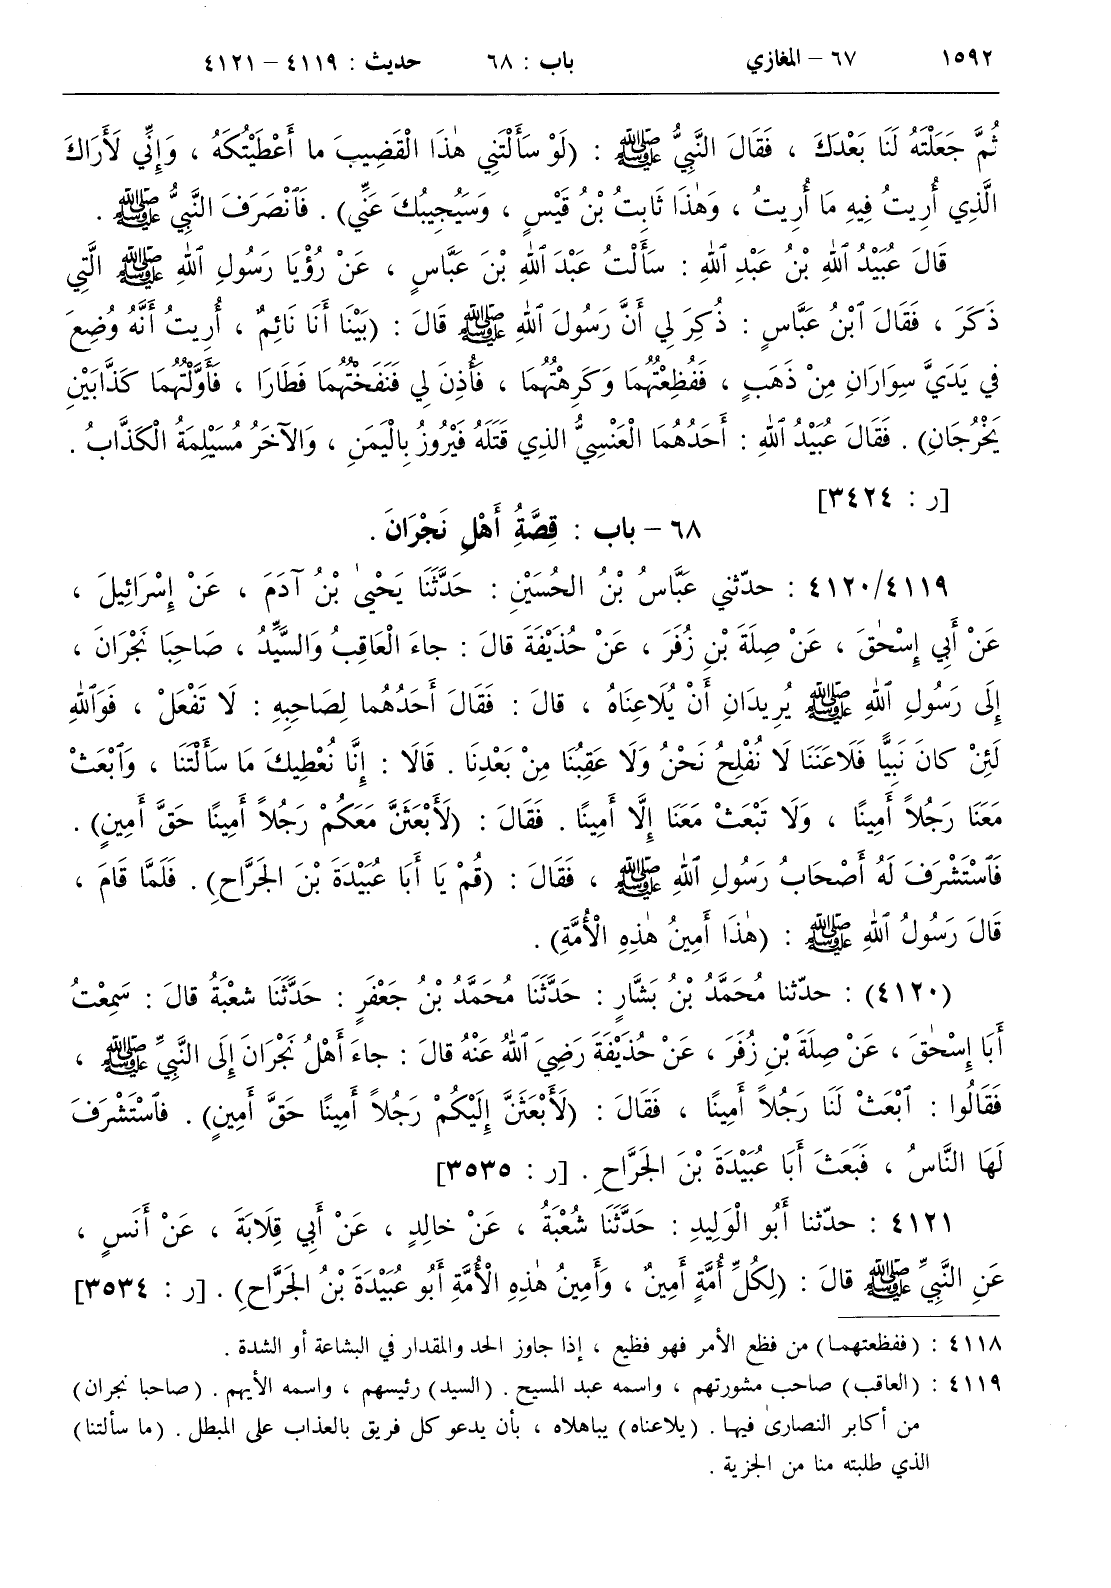 ١٥٩٢ ٦٧ – المغازي باب : ٦٨ حديث : ٤١١٩ – ٤١٢١
ثُمَّ جَعَلْتَهُ لَنَا بَعْدَكَ ، فَقَالَ النَّبِيُّ ﷺ : (لَوْ سَأَلْتَنِي هٰذَا الْقَضِيبَ ما أَعْطَيْتُكَهُ ، وَإِنِّي لَأَرَاكَ
الَّذِي أُرِيتُ فِيهِ مَا أُرِيتُ ، وَهٰذَا ثَابِتُ بْنُ قَيْسٍ ، وَسَيُجِيبُكَ عَنِّي) . فَٱنْصَرَفَ النَّبِيُّ ﷺ .
قَالَ عُبَيْدُ ٱللهِ بْنُ عَبْدِ ٱللهِ : سَأَلْتُ عَبْدَ ٱللهِ بْنَ عَبَّاسٍ ، عَنْ رُؤْيَا رَسُولِ ٱللهِ ﷺ الَّتِي
ذَكَرَ ، فَقَالَ ٱبْنُ عَبَّاسٍ : ذُكِرَ لِي أَنَّ رَسُولَ ٱللهِ ﷺ قَالَ : (بَيْنَا أَنَا نَائِمٌ ، أُرِيتُ أَنَّهُ وُضِعَ
في يَدَيَّ سِوَارَانِ مِنْ ذَهَبٍ ، فَفُظِعْتُهُمَا وَكَرِهْتُهُمَا ، فَأُذِنَ لِي فَنَفَخْتُهُمَا فَطَارَا ، فَأَوَّلْتُهُمَا كَذَّابَيْنِ
يَخْرُجَانِ) . فَقَالَ عُبَيْدُ ٱللهِ : أَحَدُهُمَا الْعَنْسِيُّ الذِي قَتَلَهُ فَيْرُوزُ بِالْيَمَنِ ، وَالآخَرُ مُسَيْلِمَةُ الْكَذَّابُ .
[ر : ٣٤٢٤]
٦٨ – باب : قِصَّةُ أَهْلِ نَجْرَانَ .
٤١٢٠/٤١١٩ : حدّثني عَبَّاسُ بْنُ الحُسَيْنِ : حَدَّثَنَا يَحْيىٰ بْنُ آدَمَ ، عَنْ إِسْرَائِيلَ ،
عَنْ أَبِي إِسْحٰقَ ، عَنْ صِلَةَ بْنِ زُفَرَ ، عَنْ حُذَيْفَةَ قالَ : جاءَ الْعَاقِبُ وَالسَّيِّدُ ، صَاحِبَا نَجْرَانَ ،
إِلَى رَسُولِ ٱللهِ ﷺ يُرِيدَانِ أَنْ يُلَاعِنَاهُ ، قالَ : فَقَالَ أَحَدُهُما لِصَاحِبِهِ : لَا تَفْعَلْ ، فَوَٱللهِ
لَئِنْ كانَ نَبِيًّا فَلَاعَنَنَا لَا نُفْلِحُ نَحْنُ وَلَا عَقِبُنَا مِنْ بَعْدِنَا . قَالَا : إِنَّا نُعْطِيكَ مَا سَأَلْتَنَا ، وَٱبْعَثْ
مَعَنَا رَجُلاً أَمِينًا ، وَلَا تَبْعَثْ مَعَنَا إِلَّا أَمِينًا . فَقَالَ : (لَأَبْعَثَنَّ مَعَكُمْ رَجُلاً أَمِينًا حَقَّ أَمِينٍ) .
فَٱسْتَشْرَفَ لَهُ أَصْحَابُ رَسُولِ ٱللهِ ﷺ ، فَقَالَ : (قُمْ يَا أَبَا عُبَيْدَةَ بْنَ الجَرَّاحِ) . فَلَمَّا قَامَ ،
قَالَ رَسُولُ ٱللهِ ﷺ : (هٰذَا أَمِينُ هٰذِهِ الْأُمَّةِ) .
(٤١٢٠) : حدّثنا مُحَمَّدُ بْنُ بَشَّارٍ : حَدَّثَنَا مُحَمَّدُ بْنُ جَعْفَرٍ : حَدَّثَنَا شعْبَةُ قالَ : سَمِعْتُ
أَبَا إِسْحٰقَ ، عَنْ صِلَةَ بْنِ زُفَرَ ، عَنْ حُذَيْفَةَ رَضِيَ ٱللهُ عَنْهُ قالَ : جاءَ أَهْلُ نَجْرَانَ إِلَى النَّبِيِّ ﷺ ،
فَقَالُوا : ٱبْعَثْ لَنَا رَجُلاً أَمِينًا ، فَقَالَ : (لَأَبْعَثَنَّ إِلَيْكُمْ رَجُلاً أَمِينًا حَقَّ أَمِينٍ) . فَٱسْتَشْرَفَ
لَهَا النَّاسُ ، فَبَعَثَ أَبَا عُبَيْدَةَ بْنَ الجَرَّاحِ . [ر : ٣٥٣٥]
٤١٢١ : حدّثنا أَبُو الْوَلِيدِ : حَدَّثَنَا شُعْبَةُ ، عَنْ خالِدٍ ، عَنْ أَبِي قِلَابَةَ ، عَنْ أَنَسٍ ،
عَنِ النَّبِيِّ ﷺ قالَ : (لِكُلِّ أُمَّةٍ أَمِينٌ ، وَأَمِينُ هٰذِهِ الْأُمَّةِ أَبُو عُبَيْدَةَ بْنُ الجَرَّاحِ) . [ر : ٣٥٣٤]
٤١١٨ : (ففظعتهما) من فظع الأمر فهو فظيع ، إذا جاوز الحد والمقدار في البشاعة أو الشدة .
٤١١٩ : (العاقب) صاحب مشورتهم ، واسمه عبد المسيح . (السيد) رئيسهم ، واسمه الأيهم . (صاحبا نجران)
من أكابر النصارىٰ فيها . (يلاعناه) يباهلاه ، بأن يدعو كل فريق بالعذاب على المبطل . (ما سألتنا)
الذي طلبته منا من الجزية .